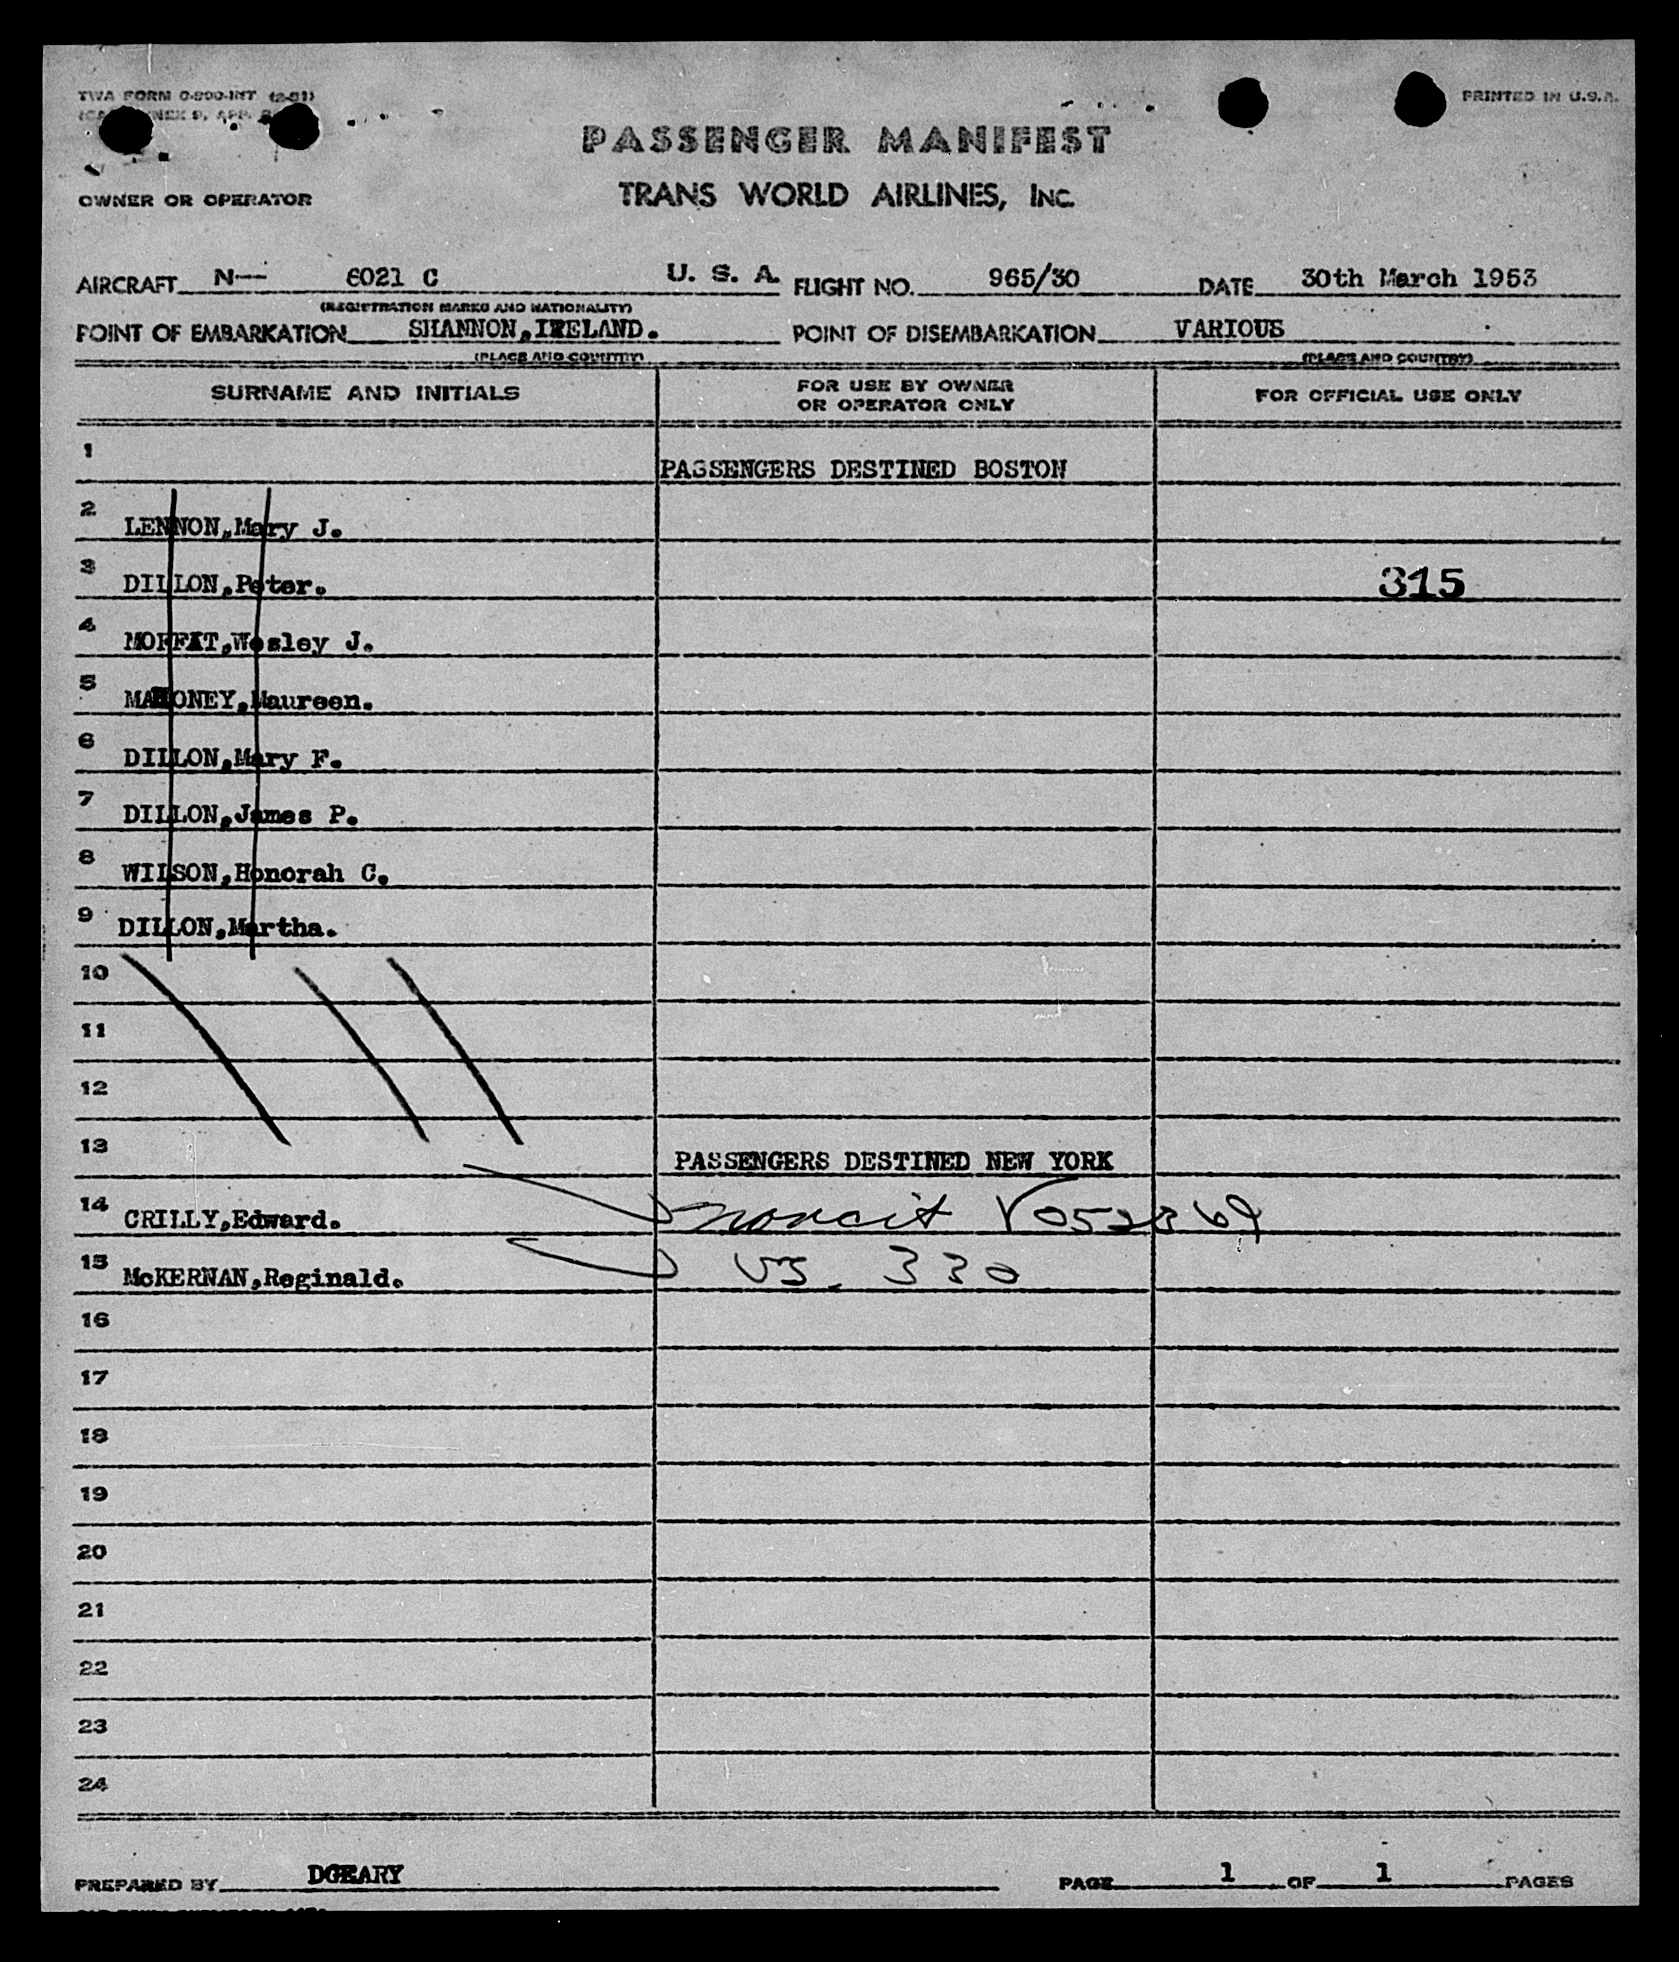 TWA FORM
PRINTED IN U.S.A.
PASSENGER MANIFEST
OWNER OR OPERATOR
TRANS WORLD AIRLINES, INC.
AIRCRAFT N— 6021 C U. S. A. FLIGHT NO. 965/30 DATE 30th March 1953
(REGISTRATION MARKS AND NATIONALITY)
POINT OF EMBARKATION SHANNON,IRELAND. POINT OF DISEMBARKATION VARIOUS
(PLACE AND COUNTRY) (PLACE AND COUNTRY)
SURNAME AND INITIALS FOR USE BY OWNER OR OPERATOR ONLY FOR OFFICIAL USE ONLY
1 PASSENGERS DESTINED BOSTON
2 LENNON,Mary J.
3 DILLON,Peter. 315
4 MOFFAT,Wesley J.
5 MAHONEY,Maureen.
6 DILLON,Mary F.
7 DILLON,James P.
8 WILSON,Honorah C.
9 DILLON,Martha.
10
11
12
13 PASSENGERS DESTINED NEW YORK
14 CRILLY,Edward.
15 McKERNAN,Reginald. 330
16
17
18
19
20
21
22
23
24
PREPARED BY DGEARY PAGE 1 OF 1 PAGES